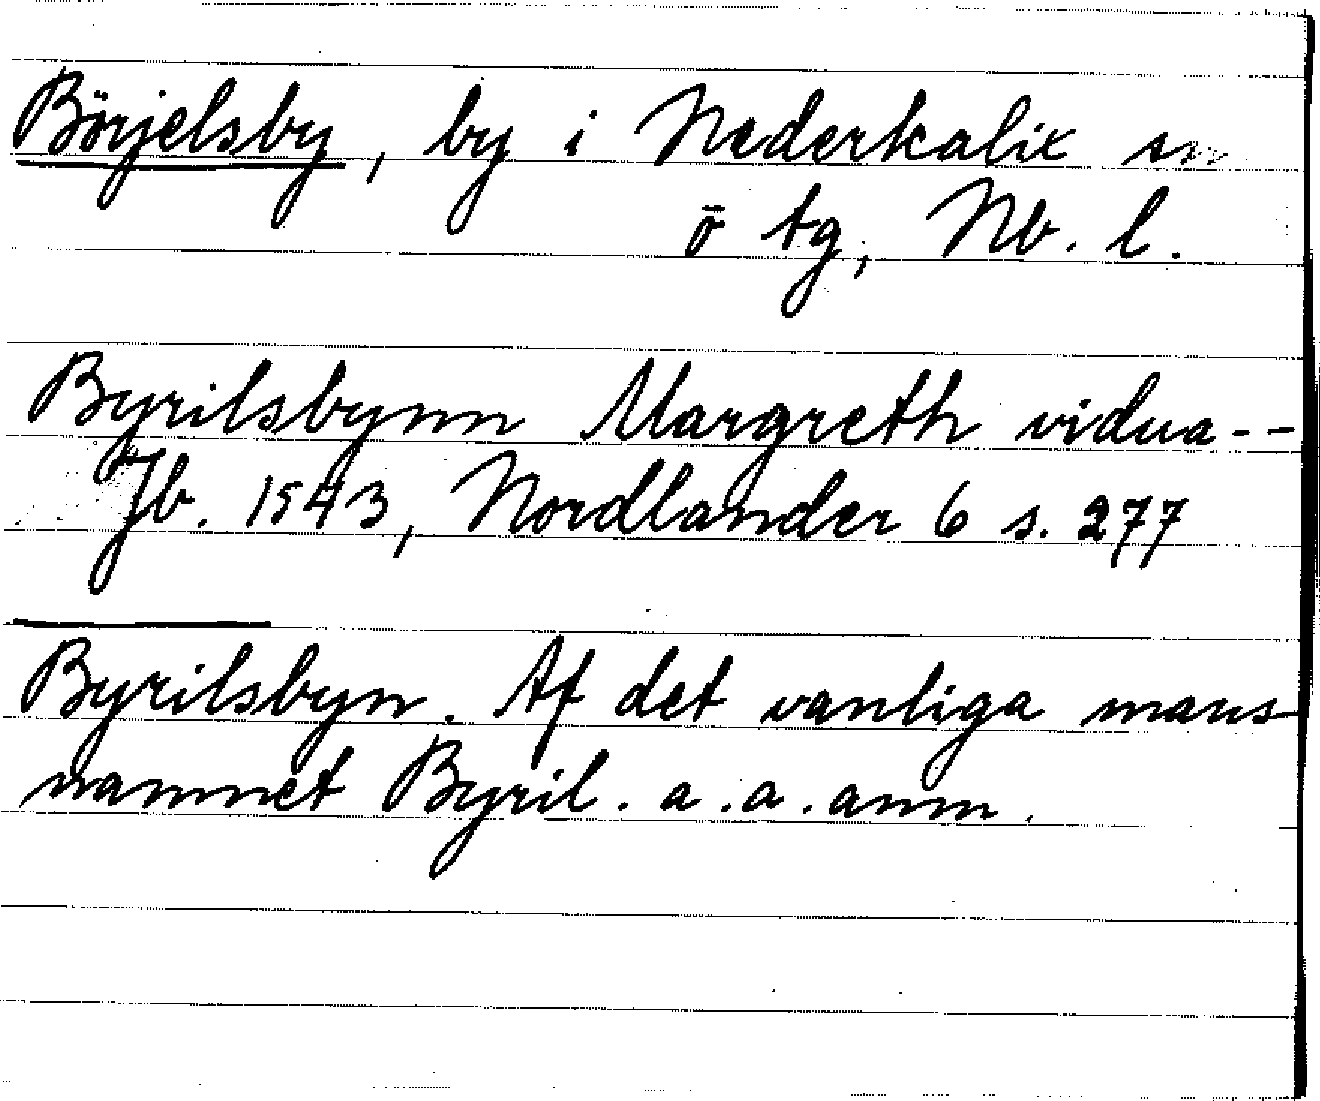 Börjelsby, by i Nederkalix sn
ö tg, Nb. l.
Byrilsbynn Margreth vidua--
Jb. 1543, Nordlander 6 s. 277
Byrilsbyn. Af det vanliga mans-
namnet Byril. a.a. anm.